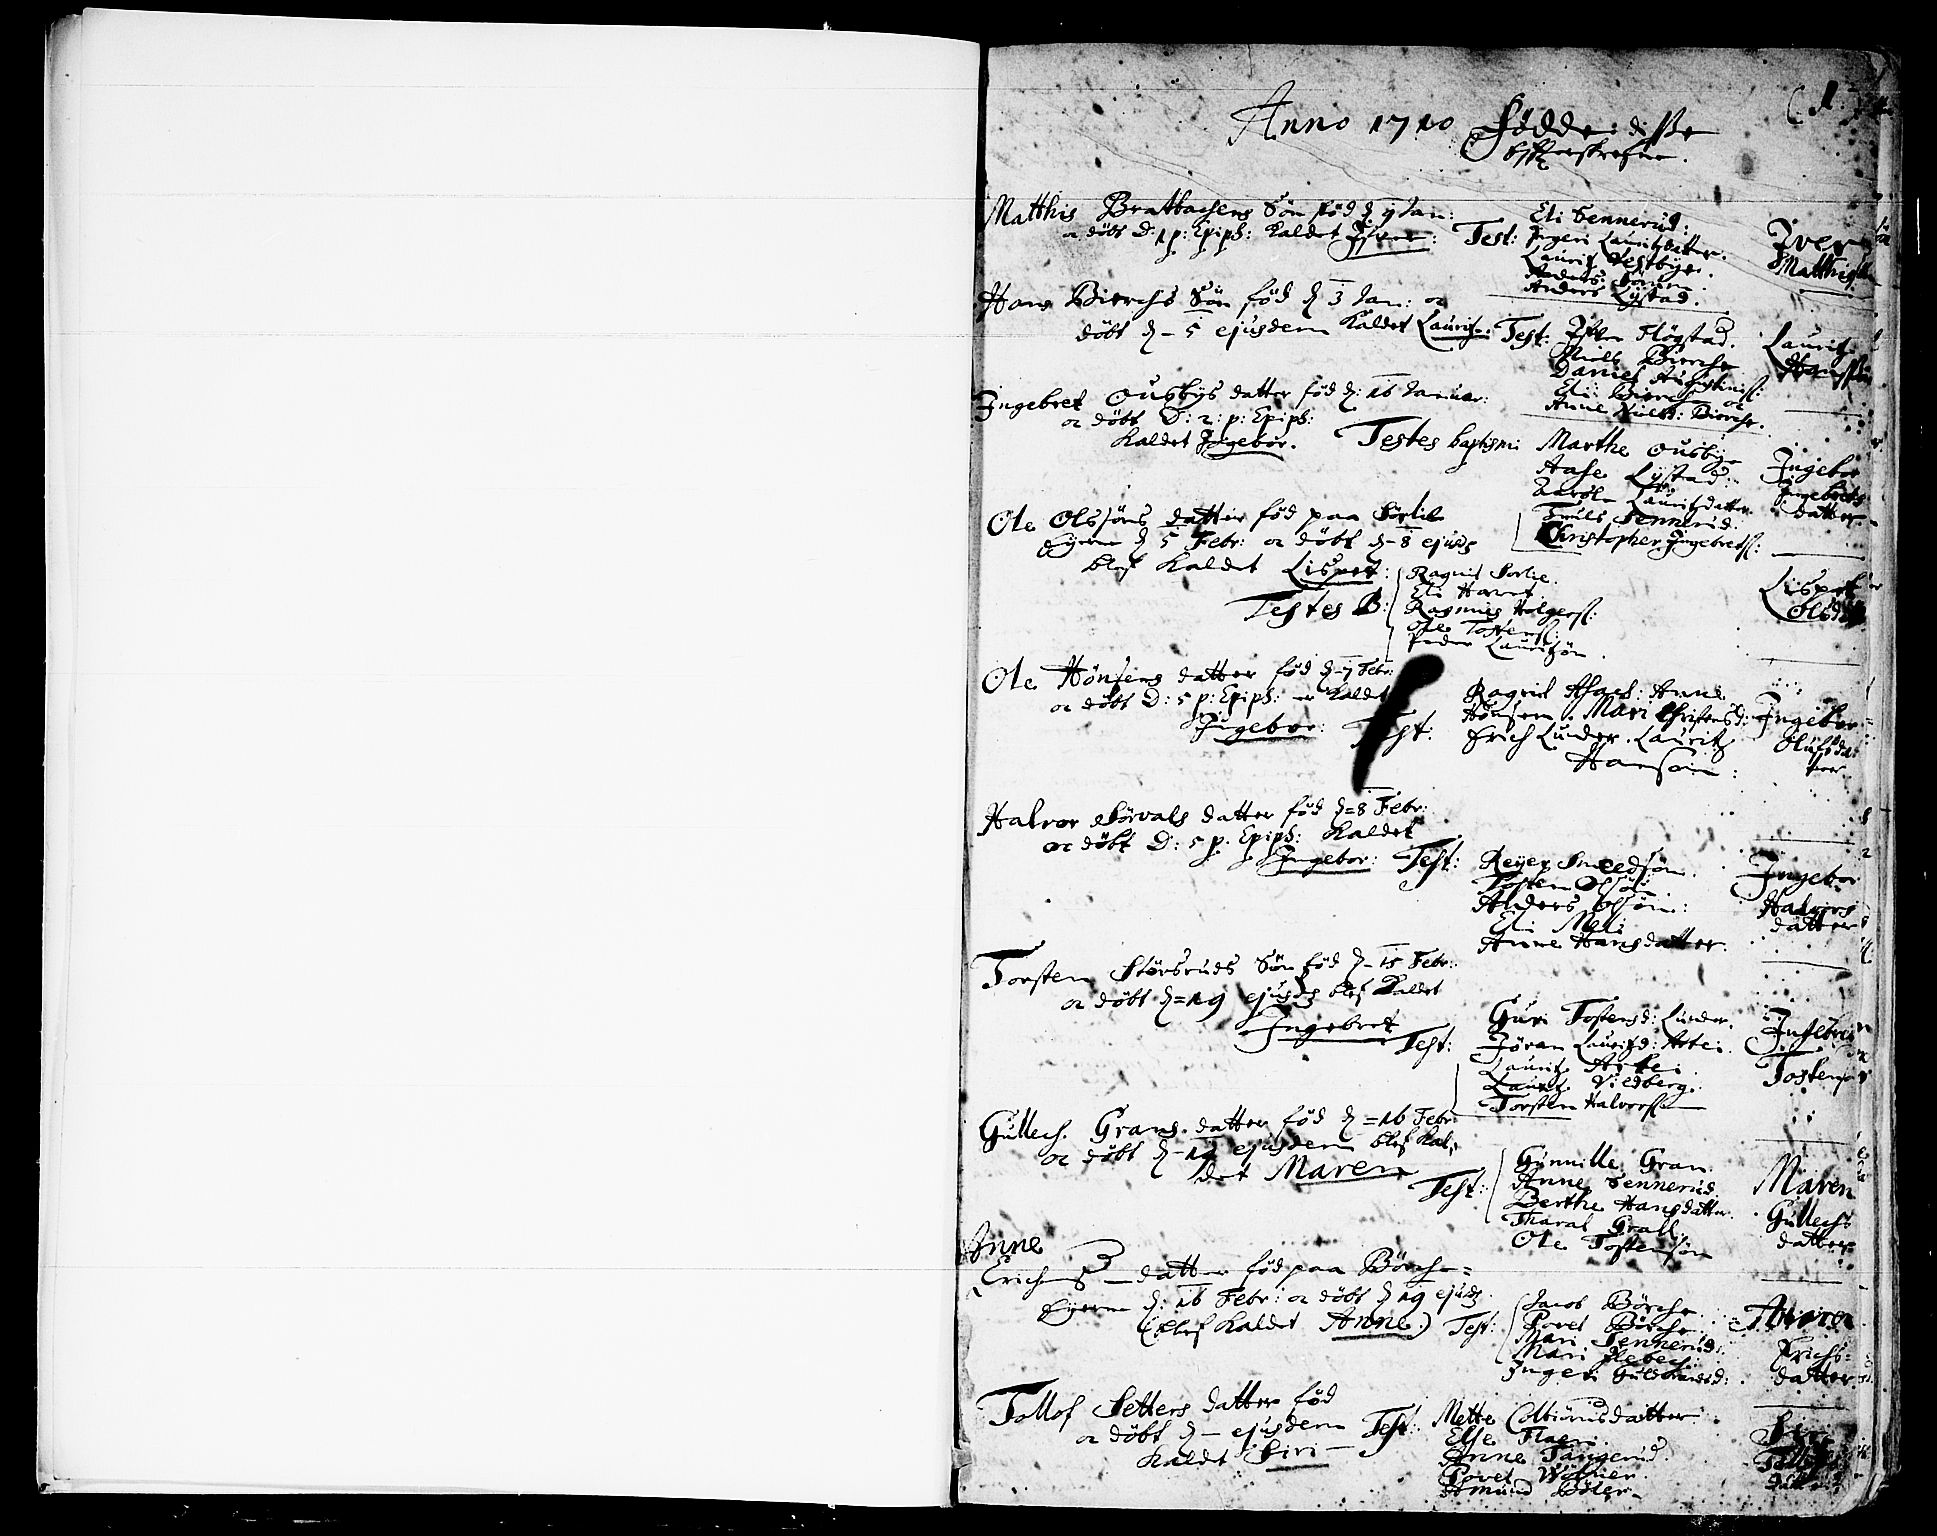 (1.
Anno 1710 Fødde: disse
Matthis Bratbachens Søn fød d. y Jan:
oc døbt D: 1 p: Epiph: kaldet Ifver:
Test: Eli Sennerud:
Ingeri Lauritzdatter.
Lauritz Westbye.
Anders
Anders Lystad.
Iver
Matthis
Hans Bierchs Søn fød d 3 Jan: oc
døbt d - 5 ejusdem kaldet Lauritz:
Test: Høgstad.
Niels Bierche
Daniel
Eli Bierche oc
Anne Niels: Bierche.
Lauritz
Hanss
Ingebret Ousbys datter fød d: 16 Januar:
oc døbt D: 2: p: Epiph:
kaldet Ingebor.
Testes baptismi: Marthe Ousbye
Aase Lystad:
Lauritzdatter
Truls Sennerud.
Christopher Ingebretss:
Ingebor
Ingebrets
datter
Ole Olssøns datter fød paa Sørlie
Eyerne d 5 Febr: oc døbt d - 8 ejusd
blef kaldet Lispet:
Testes B: Ragnil Sorlie.
Eli
Rasmus Holgerss:
Ole Tostenss:
Peder Lauritzøn.
Lispet
Olsd
Ole Hönsens datter fød d - 7 Febr:
oc døbt D: 5 p: Epiph: kaldet
Ingebor:
Test: Ragnil Anne
Hönsen. Mari Christensd:
Erich Lunder. Lauritz
Hansøn:
Ingebor
Olufsda
tter
Halvor Sørvals datter fød d = 8 Febr:
oc døbt D: 5 p. Epiph: kaldet
Ingebor:
Test: Reyer Smeedsøn.
Tosten Olsøn.
Anders Olsøn:
Eli Meli
Anne Hansdatter.
Ingebor
Halvors
datter
Torsten Størsruds Søn fød d - 15 Febr:
oc døbt d = 19 ejusd blef kaldet
Ingebret
Test: Guri Tostensd: Lunder.
Jøran Lauritzd: Askei.
Lauritz Askei
Lauritz Viedberg.
Torsten Halvorss
Ingebret
Tostens
Gullech Grans datter fød d = 16 Febr
oc døbt d - 19 ejusdem blef kal-
det Maren
Test: Gunnille Gran.
Anne Sennerud.
Berthe Hansdatter.
Tharal Grall
Ole Tostensøn
Maren
Gullechs
datter
Anne
Erichs datter fød paa Børche
Eyerne d: 16 Febr: oc døbt d 19 ejusd.
(blef kaldet Anne.)
Test: Jacob Børche
Povel Børche
Mari Sennerud:
Mari
Ingeri Gulbrandsd:
Anne
Erichs
datter.
Tollof Setters datter fød
oc døbt d - ejusdem
kaldet Siri
Test: Mette Colbiørnsdatter
Else
Anne Tangerud.
Povel
Amund Bøler
Siri